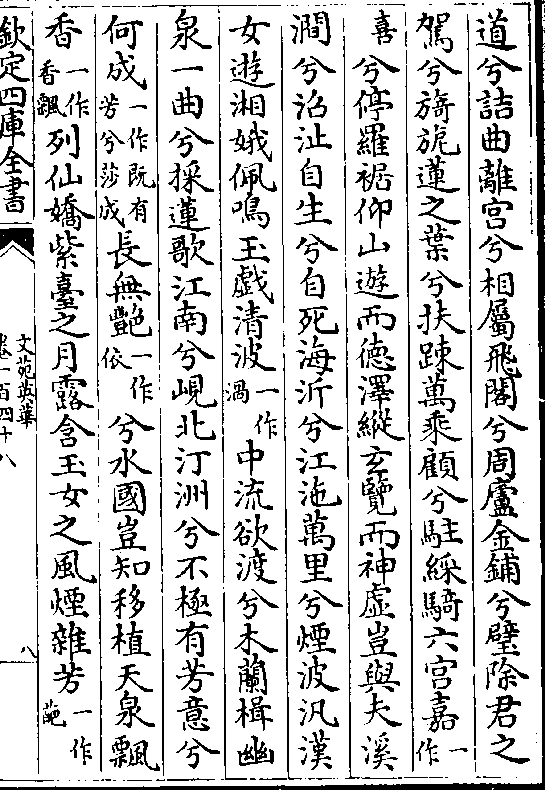 道兮詰曲離宮兮相屬飛閣兮周廬金鋪兮璧除君之
駕兮旖旎蓮之葉兮扶踈萬乘顧兮駐綵騎六宮嘉一作
喜兮停羅裾仰山遊而德澤縱玄覽而神虛豈與夫溪
澗兮沼沚自生兮自死海沂兮江沲萬里兮煙波汎漢
女遊湘娥佩鳴玉戲清波一作渦中流欲渡兮木蘭楫幽
泉一曲兮採蓮歌江南兮峴北汀洲兮不極有芳意兮
何成一作既有芳兮莎成長無艷一作依兮水國豈知移植天泉飄
香一作香飄列仙嬌紫臺之月露含玉女之風煙雜芳一作葩
欽定四庫全書
文苑英華
卷一百四十八
八